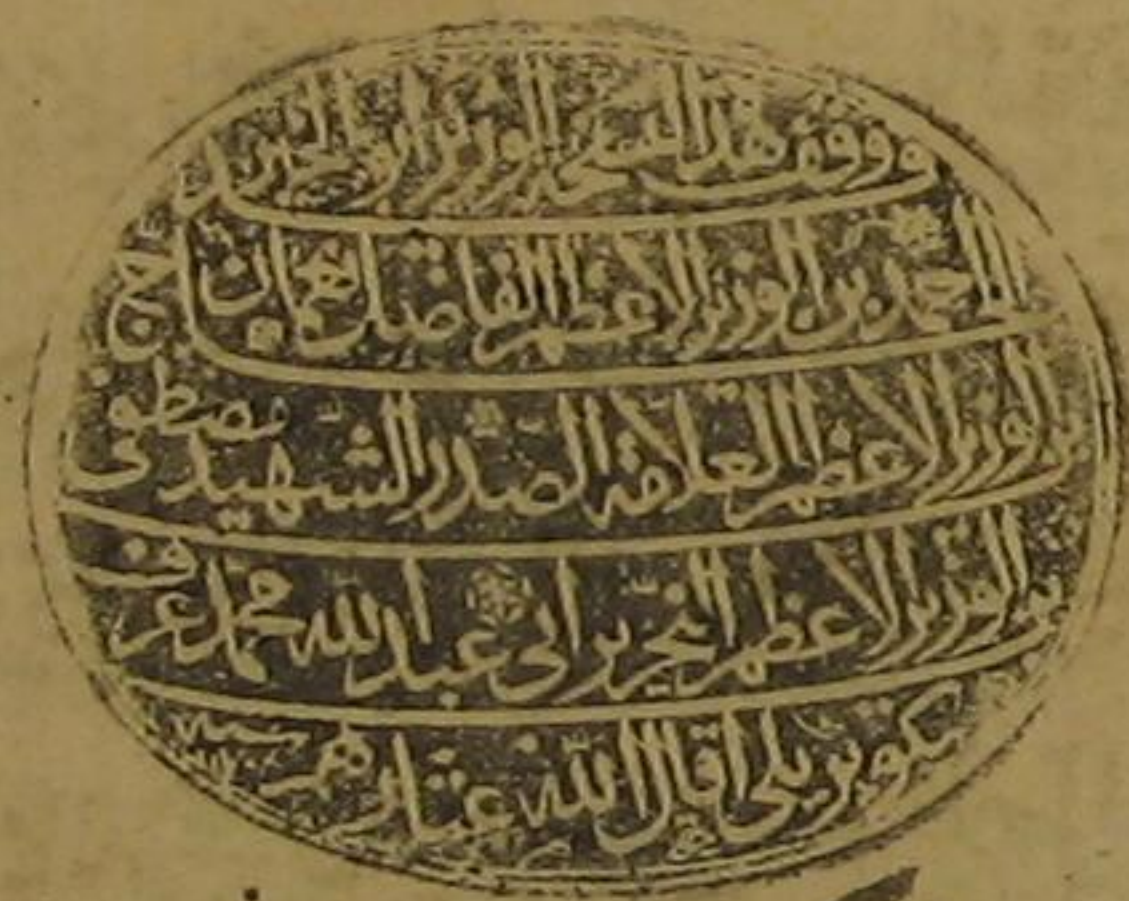 ووقف هذا النسخه الوزير ابو الخير
الحاج احمد بن الوزير الاعظم الفاضل نعمان
بن الوزير الاعظم العلامة الصدر الشهيد مصطفى
بن الوزير الاعظم النحرير ابي عبد الله محمد عرف
بكوپريلى اقال الله عثارهم